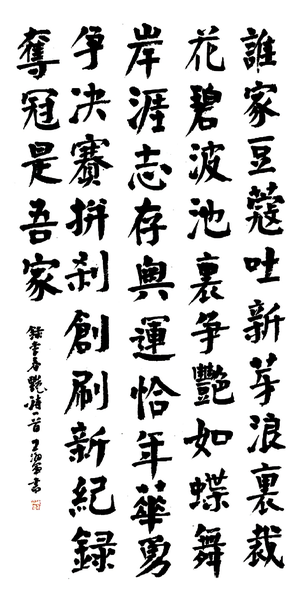 誰家豆蔻吐新芽浪裏裁
花碧波池裏争艷如蝶舞
岸涯志存奥運恰年華勇
争决賽拼刹創刷新紀録
奪冠是吾家
録李春艷詩一首